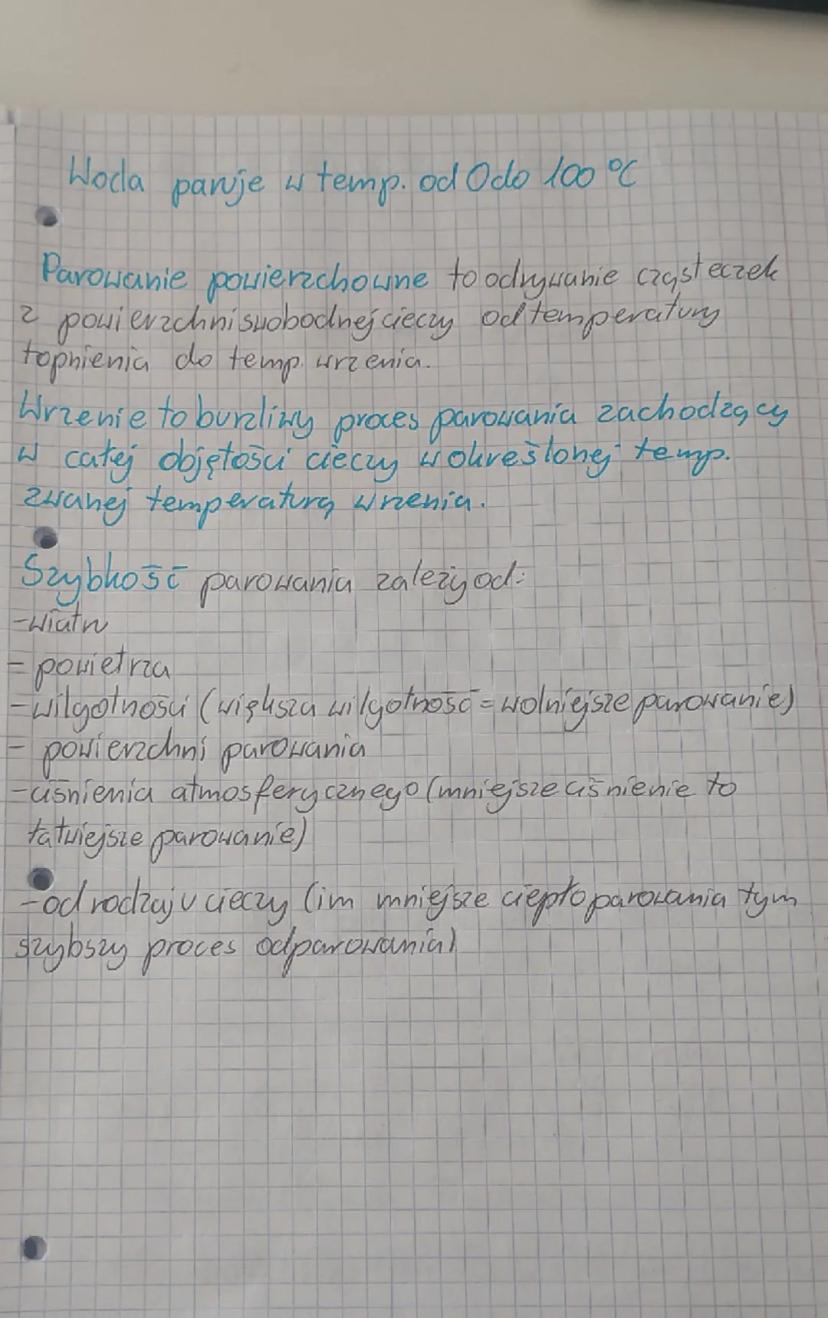 Woda paruje w temp. od 0 do 100 °C
Parowanie powierzchowne to odrywanie cząsteczek
z powierzchni swobodnej cieczy od temperatury
topnienia do temp. wrzenia.
Wrzenie to burzliwy proces parowania zachodzący
w całej objętości cieczy w określonej temp.
zwanej temperaturą wrzenia.
Szybkość parowania zależy od:
- wiatru
- powietrza
- wilgotności (większa wilgotność = wolniejsze parowanie)
- powierzchni parowania
- ciśnienia atmosferycznego (mniejsze ciśnienie to
łatwiejsze parowanie)
- od rodzaju cieczy (im mniejsze ciepło parowania tym
szybszy proces odparowania)